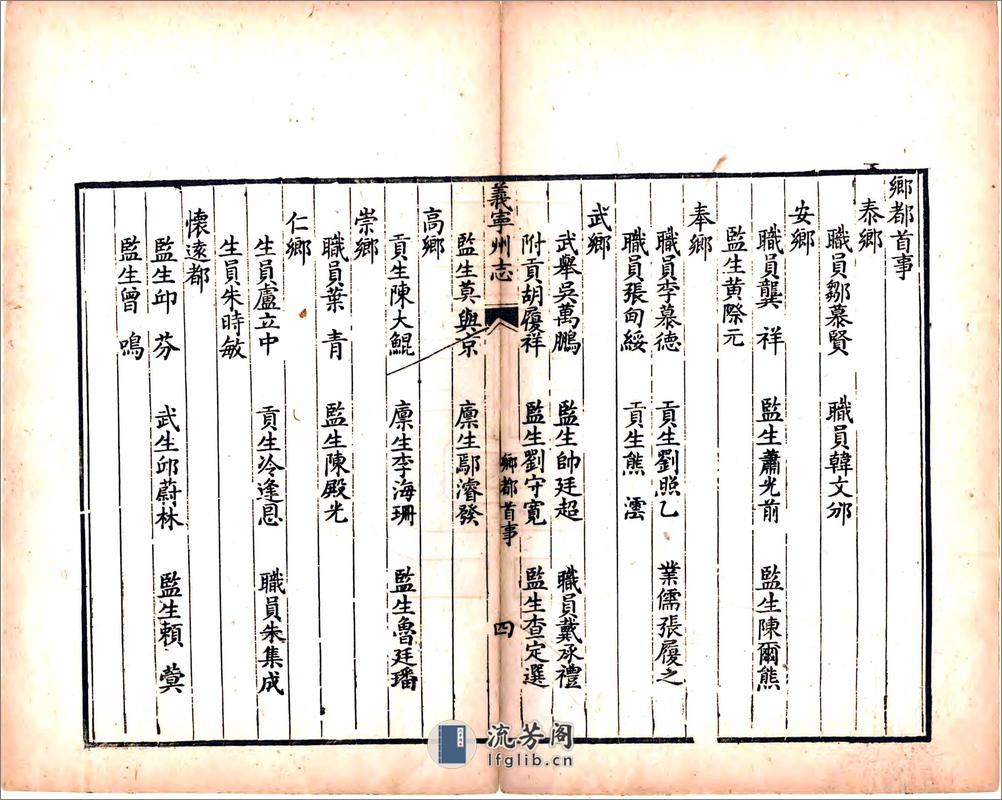 鄉都首事
泰鄉
職員鄒慕賢　職員韓文邠
安鄉
職員龔　祥　監生蕭光前　監生陳爾熊
監生黄際元
奉鄉
職員李慕德　貢生劉照乙　業儒張履之
職員張甸綏　貢生熊　澐
武鄉
武舉吳萬鵬　監生帥廷超　職員戴承禮
附貢胡履祥　監生劉守寬　監生查定選
義寧州志　鄉都首事　四
監生莫與京　廩生鄢濬發
高鄉
貢生陳大鯤　廩生李海珊　監生魯廷璠
崇鄉
職員葉　青　監生陳殿光
仁鄉
生員盧立中　貢生冷逢恩　職員朱集成
生員朱時敏
懷遠都
監生邱　芬　武生邱蔚林　監生賴　蓂
監生曾　鳴
流芳阁
lfglib.cn